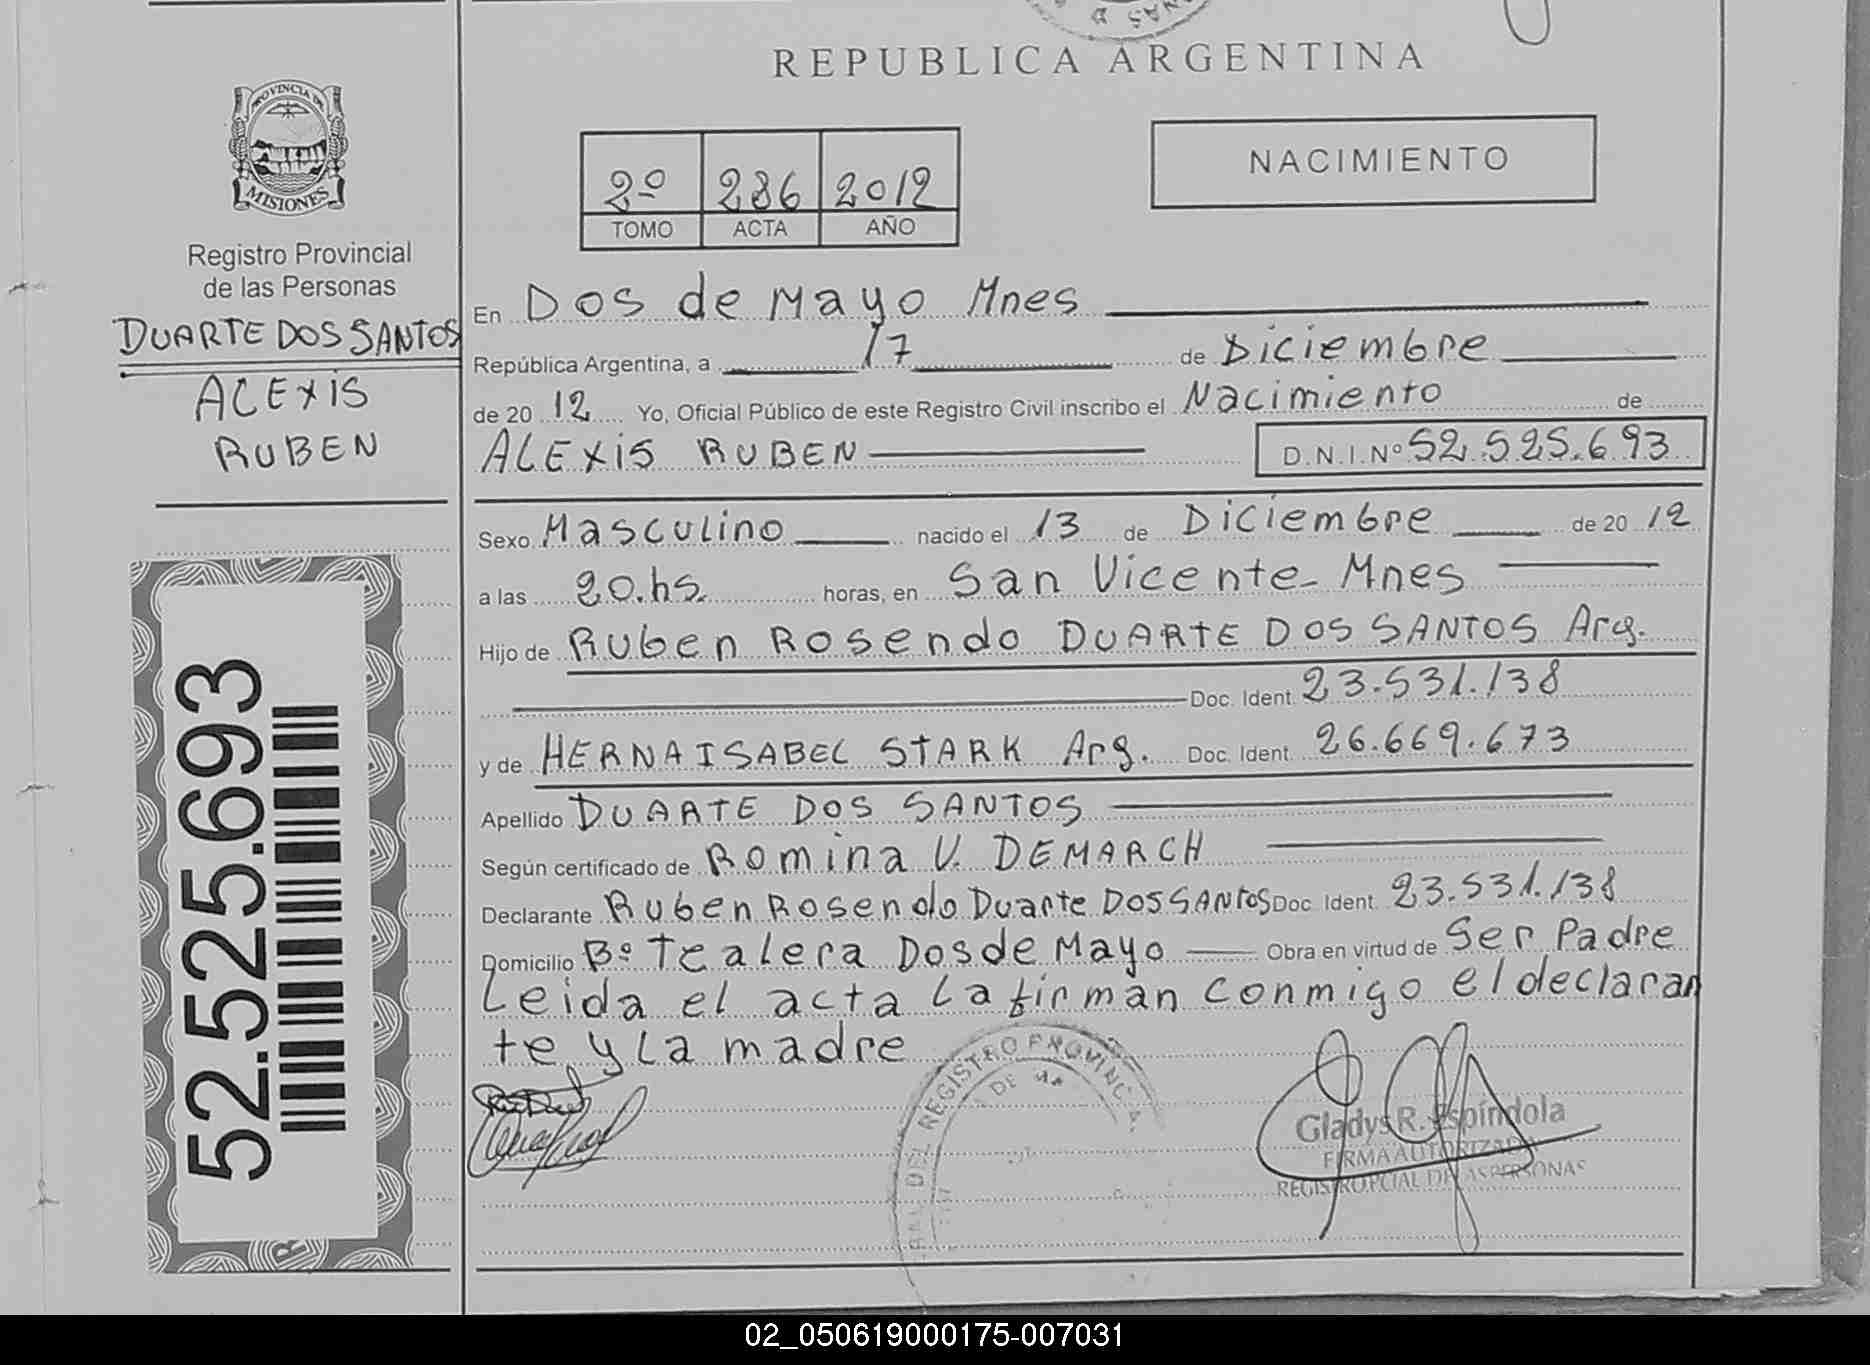 REPUBLICA ARGENTINA
PROVINCIA DE
MISIONES
Registro Provincial
de las Personas
DUARTE DOS SANTOS
ALEXIS
RUBEN
52.525.693
2º 286 2012
TOMO ACTA AÑO
NACIMIENTO
En Dos de Mayo Mnes
República Argentina, a 17 de Diciembre
de 20 12 Yo, Oficial Público de este Registro Civil inscribo el Nacimiento de
ALEXIS RUBEN D.N.I.Nº 52.525.693
Sexo Masculino nacido el 13 de Diciembre de 20 12
a las 20.hs. horas, en San Vicente - Mnes
Hijo de Ruben Rosendo DUARTE DOS SANTOS Arg.
Doc. Ident. 23.531.138
y de HERNA ISABEL STARK Arg. Doc. Ident. 26.669.673
Apellido DUARTE DOS SANTOS
Según certificado de Romina V. DEMARCH
Declarante Ruben Rosendo Duarte DOS SANTOS Doc. Ident. 23.531.138
Domicilio Bº Tealera Dos de Mayo Obra en virtud de Ser Padre
Leida el acta la firman conmigo el declaran
te y la madre
REGISTRO PROVINCIA
Gladys R. Espíndola
FIRMA AUTORIZADA
REGISTRO PCIAL DE LAS PERSONAS
02_050619000175-007031